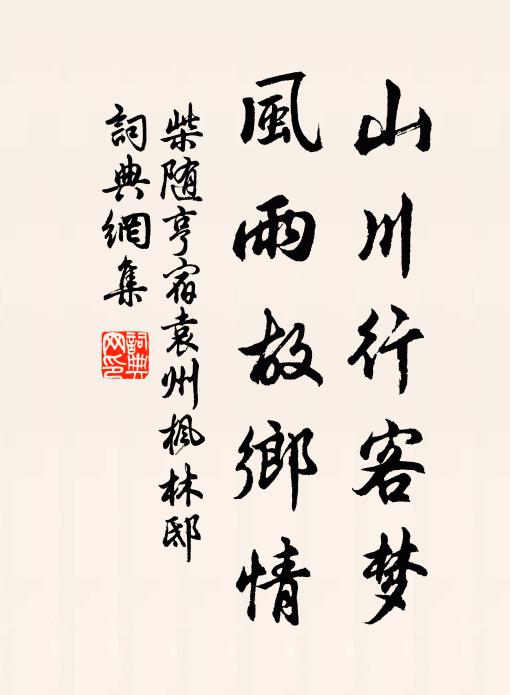 山川行客梦
風雨故鄉情
柴随亨宿袁州楓林邸
詞典網集
詞典
网印